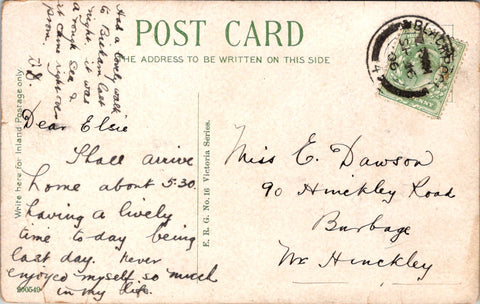 POST CARD
THE ADDRESS TO BE WRITTEN ON THIS SIDE
Write here for Inland Postage only.
Had a lovely walk
to Bispham last
night, it was
a rough Sea &
it came right over
prom.
Dear Elsie
Shall arrive
home about 5.30.
having a lively
time to-day being
last day. Never
enjoyed myself so much
in my life.
E. R. G. No. 16 Victoria Series.
Miss E. Dawson
90 Hinckley Road
Burbage
Nr Hinckley